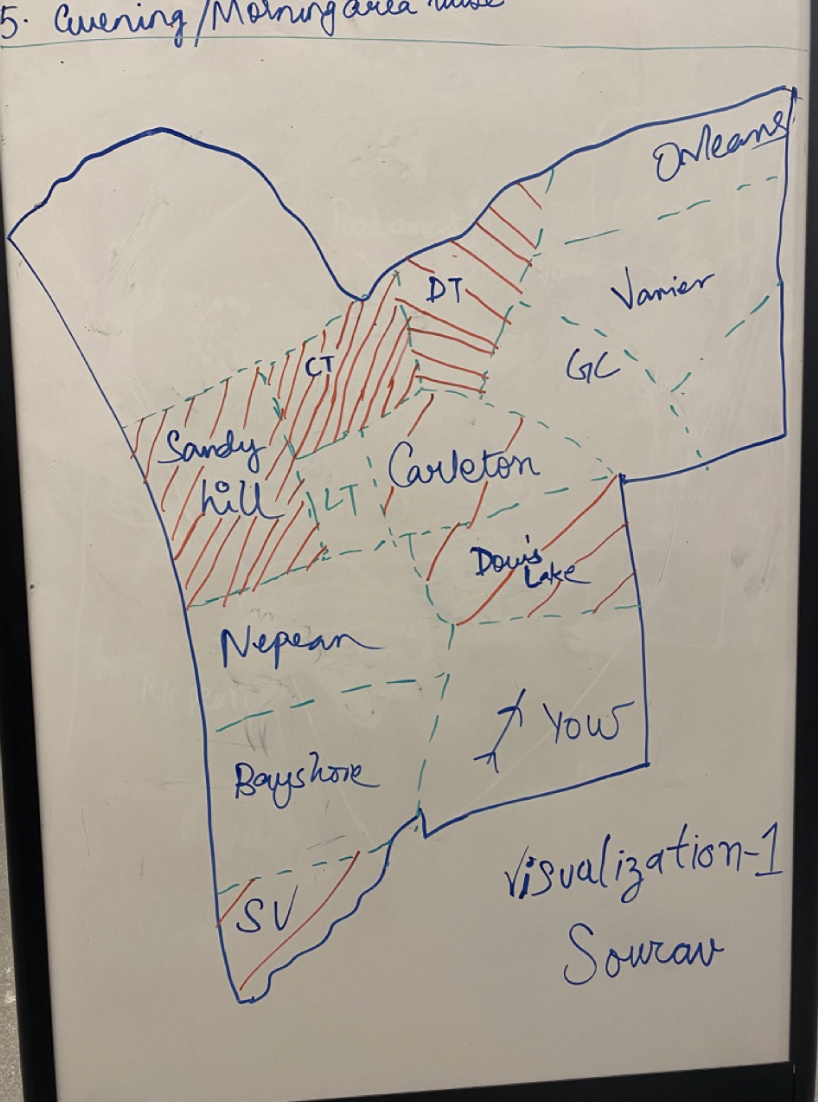 5. Evening/Morning area wise
Orleans
DT
Vanier
CT
GC
Sandy
hill
Carleton
LT
Dow's
Lake
Nepean
YOW
Bayshore
SV
Visualization-1
Sourav